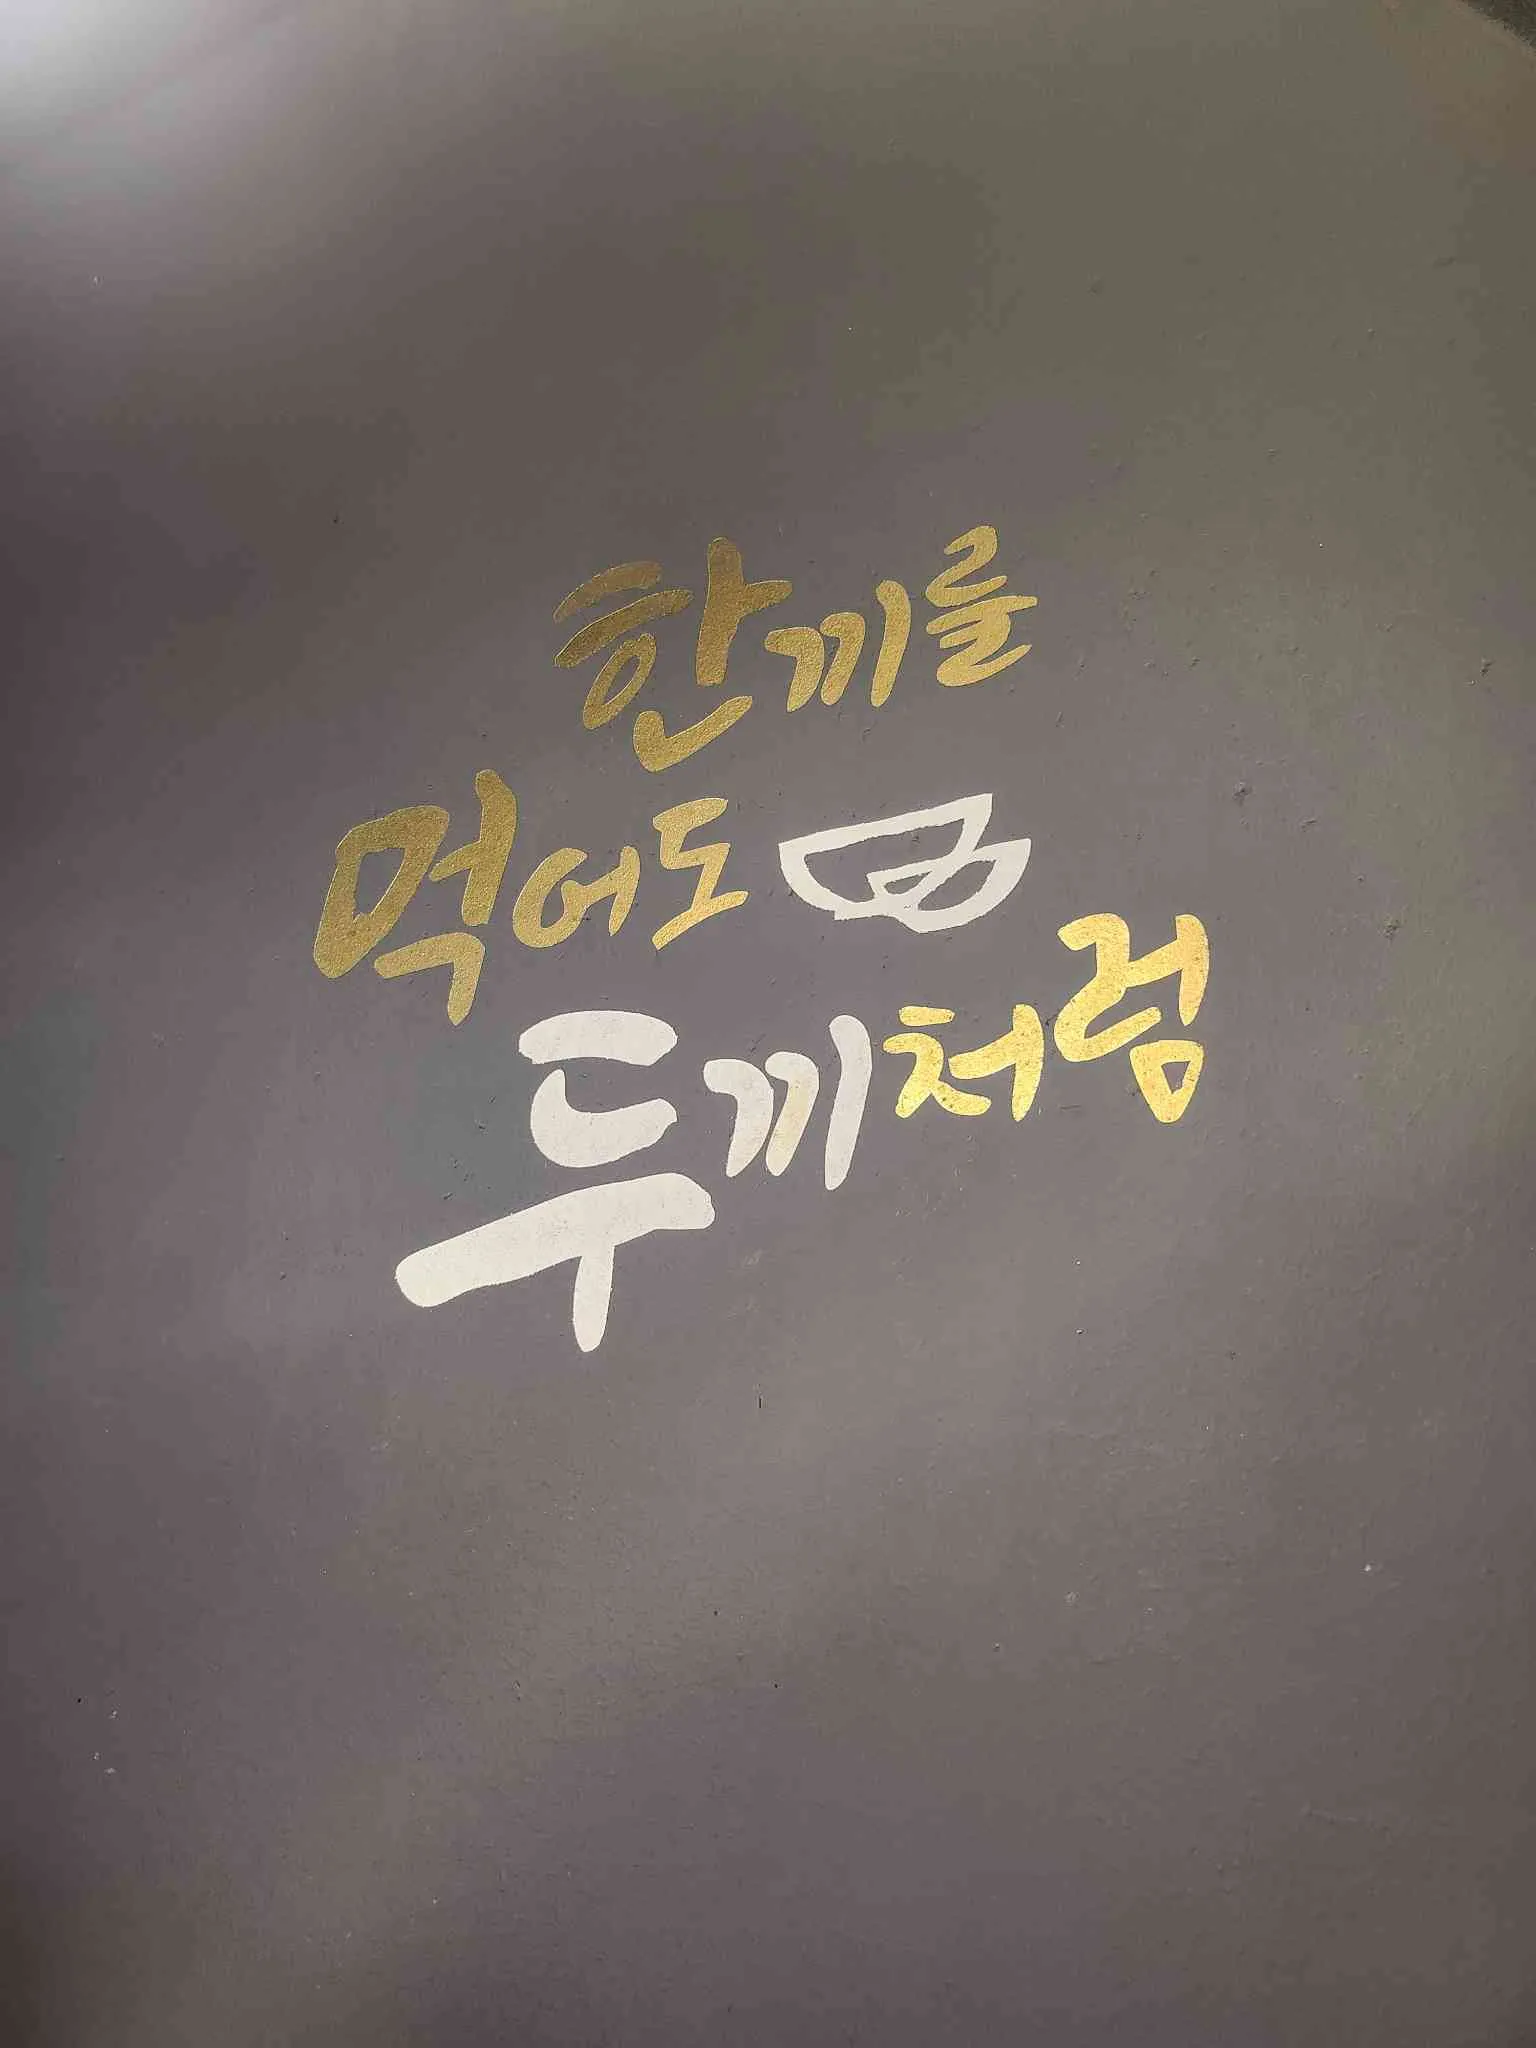 한끼를
먹어도
두끼처럼